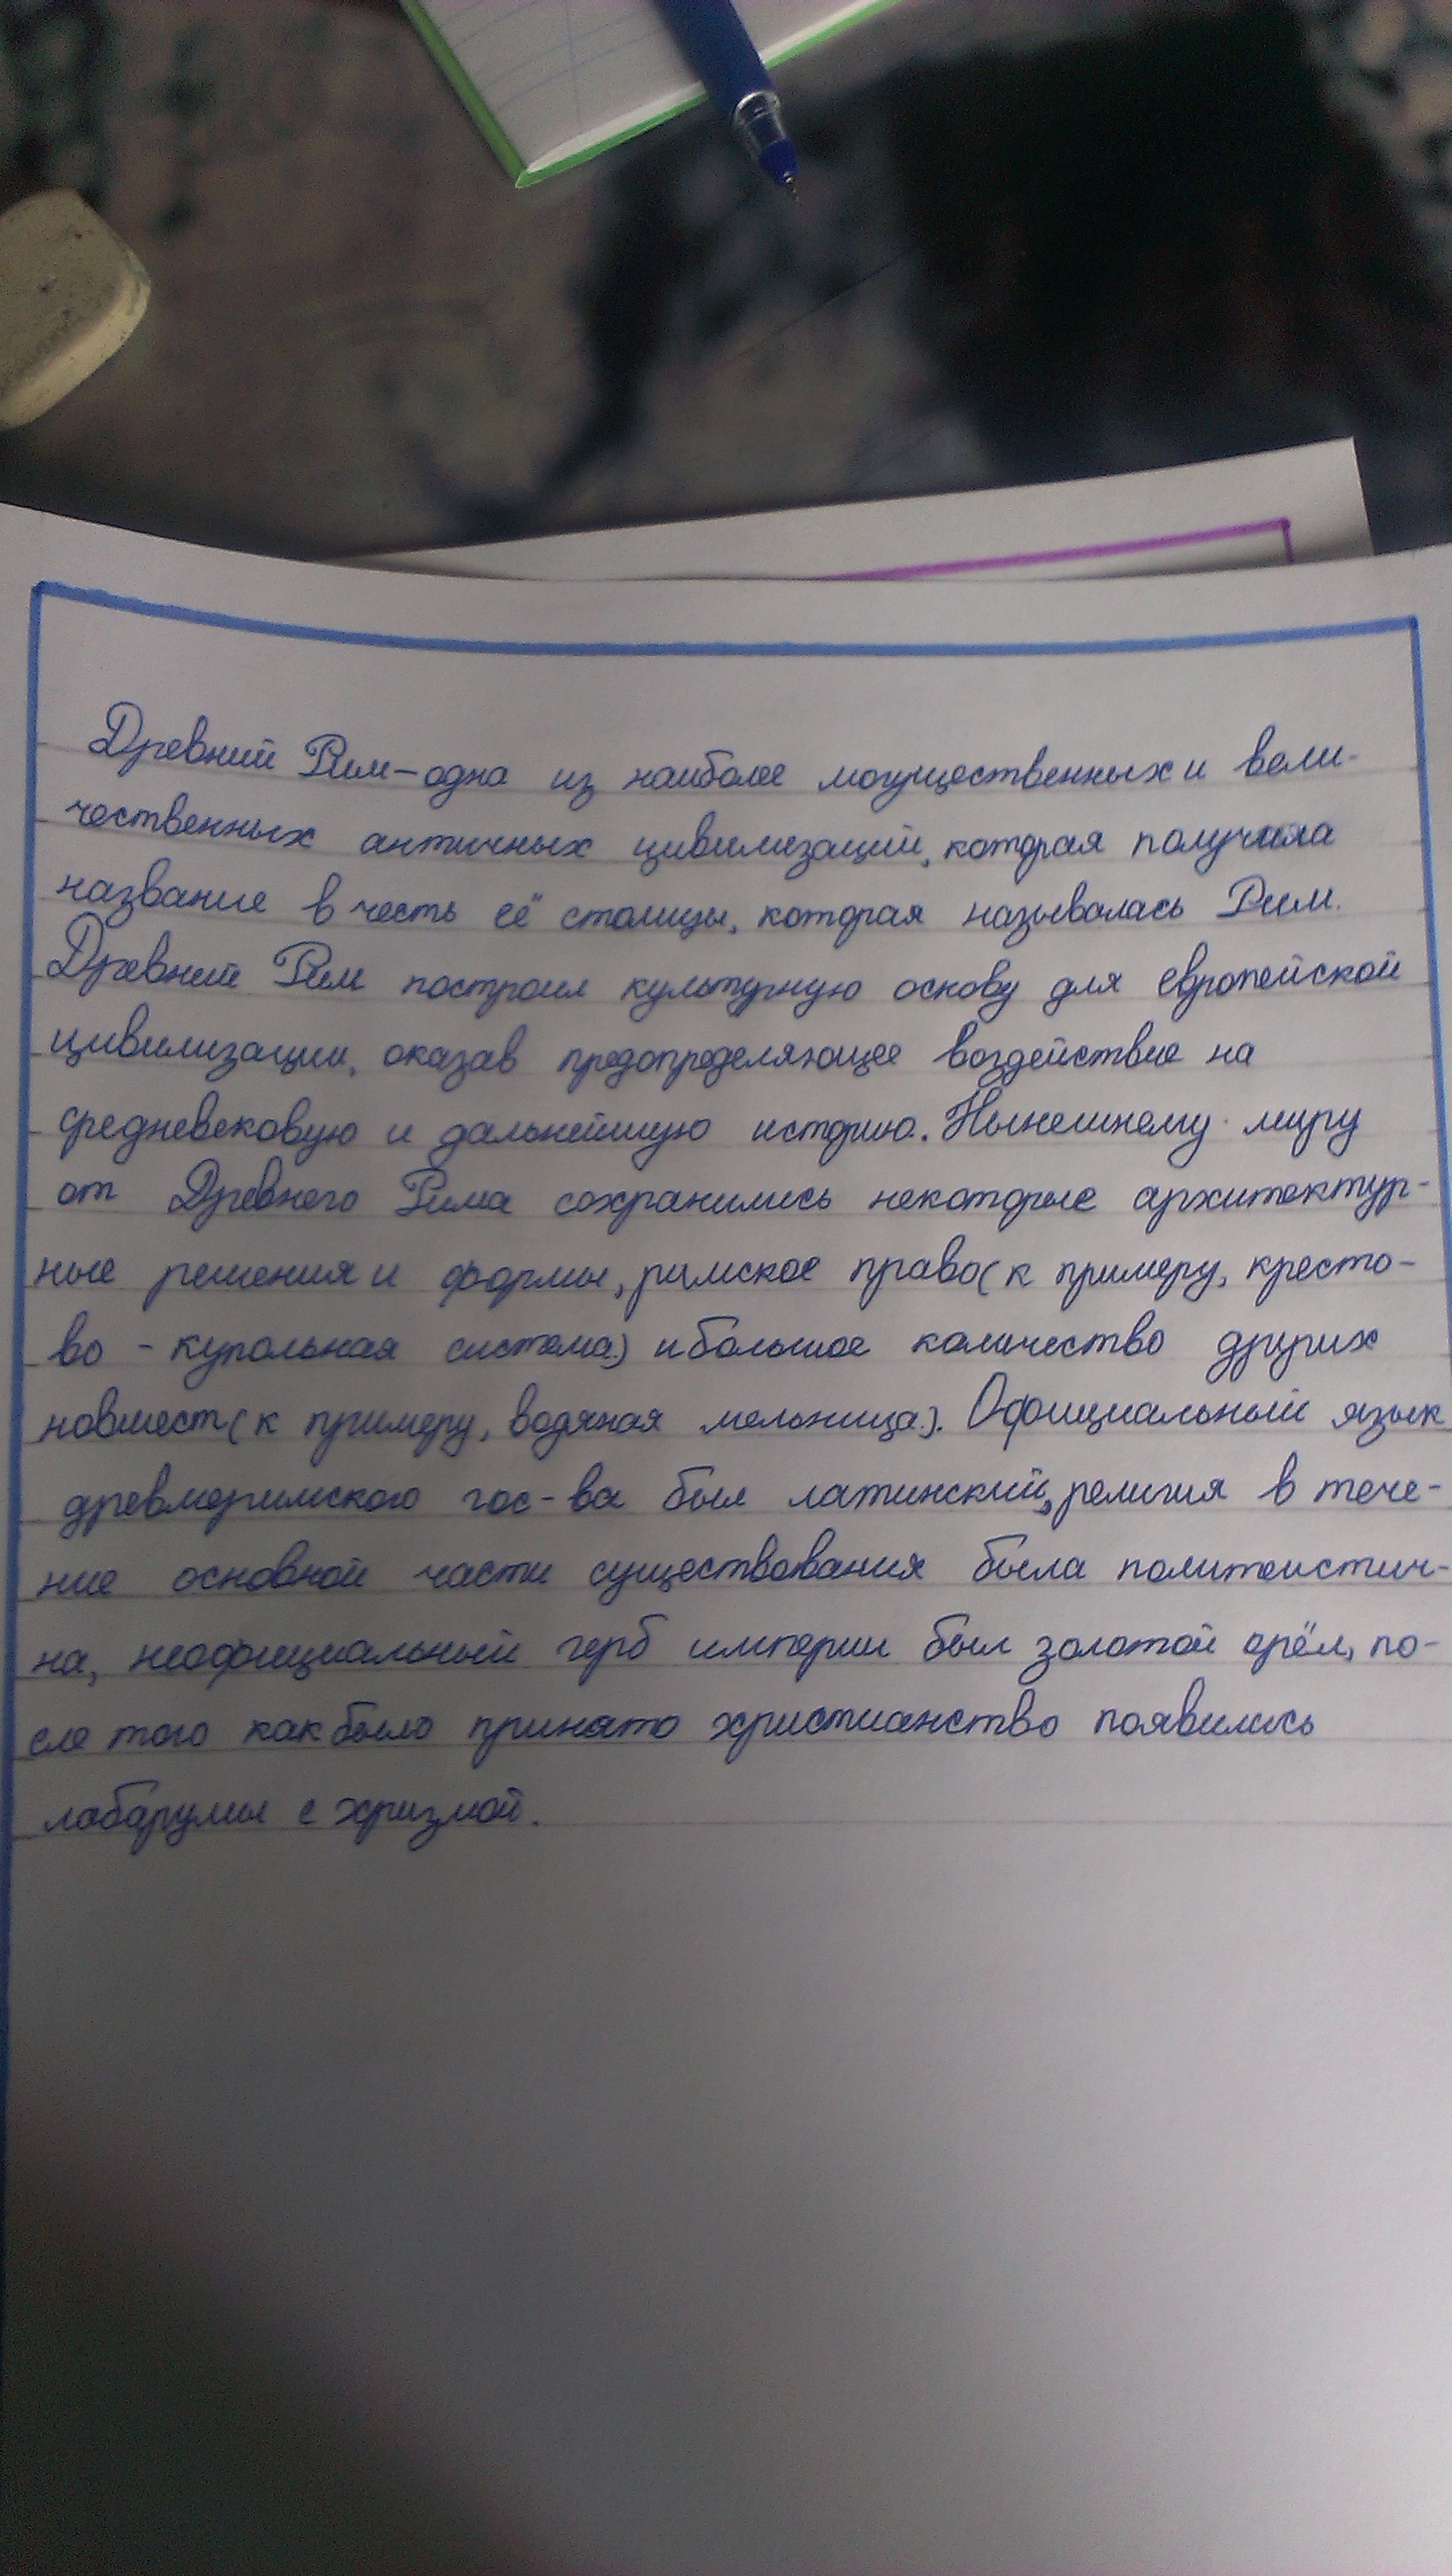 Древний Рим-одна из наиболее могущественных и вели-
чественных античных цивилизаций, которая получила
название в честь её столицы, которая называлась Рим.
Древний Рим построил культурную основу для европейской
цивилизации, оказав предопределяющее воздействие на
средневековую и дальнейшую историю. Нынешнему миру
от Древнего Рима сохранились некоторые архитектур-
ные решения и формы, римское право(к примеру, кресто-
во - купольная система) и большое количество других
новшест(к примеру, водяная мельница). Официальный язык
древнеримского гос-ва был латинский, религия в тече-
ние основной части существования была политеистич-
на, неофициальный герб империи был золотой орёл, по-
сле того как было принято христианство появились
лабарумы с хризмой.